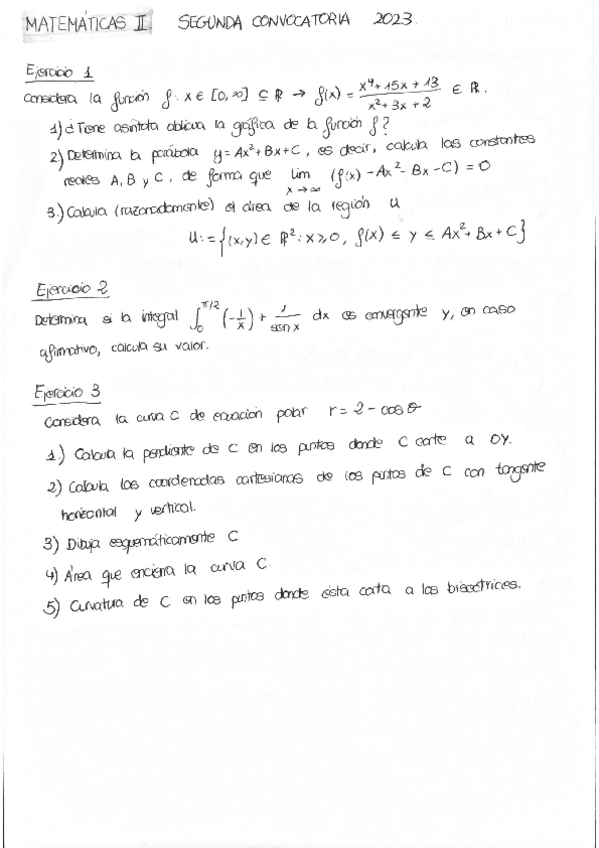 MATEMÁTICAS II SEGUNDA CONVOCATORIA 2023.
Ejercicio 1
Considera la función f: x ∈ [0, ∞] ⊆ ℝ → f(x) = (x⁴ + 15x + 13)/(x² + 3x + 2) ∈ ℝ.
1) ¿Tiene asíntota oblicua la gráfica de la función f?
2) Determina la parábola y = Ax² + Bx + C, es decir, calcula las constantes
reales A, B y C, de forma que lim x→∞ (f(x) - Ax² - Bx - C) = 0
3.) Calcula (razonadamente) el área de la región U
U := {(x,y) ∈ ℝ² : x ≥ 0, f(x) ≤ y ≤ Ax² + Bx + C}
Ejercicio 2
Determina si la integral ∫₀^π/2 (-1/x) + 1/sen x dx es convergente y, en caso
afirmativo, calcula su valor.
Ejercicio 3
Considera la curva C de ecuación polar r = 2 - cos θ
1.) Calcula la pendiente de C en los puntos donde C corte a OY.
2) Calcula las coordenadas cartesianas de los puntos de C con tangente
horizontal y vertical.
3) Dibuja esquemáticamente C
4) Área que encierra la curva C.
5) Curvatura de C en los puntos donde ésta corta a las bisectrices.